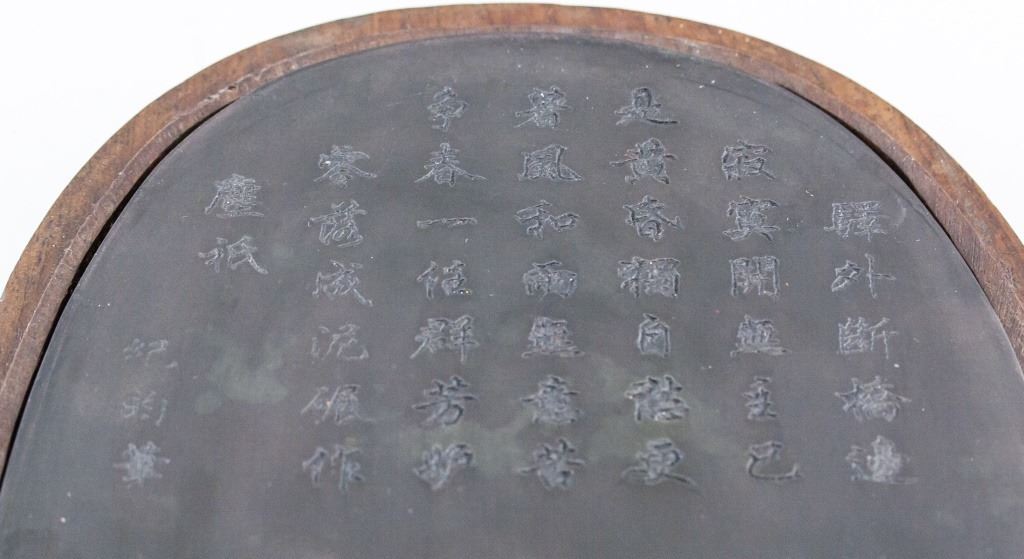 驛外斷橋邊
寂寞開無主已
是黃昏獨自愁更
著風和雨無意苦
爭春一任群芳妒
零落成泥碾作
塵祇
紀昀筆